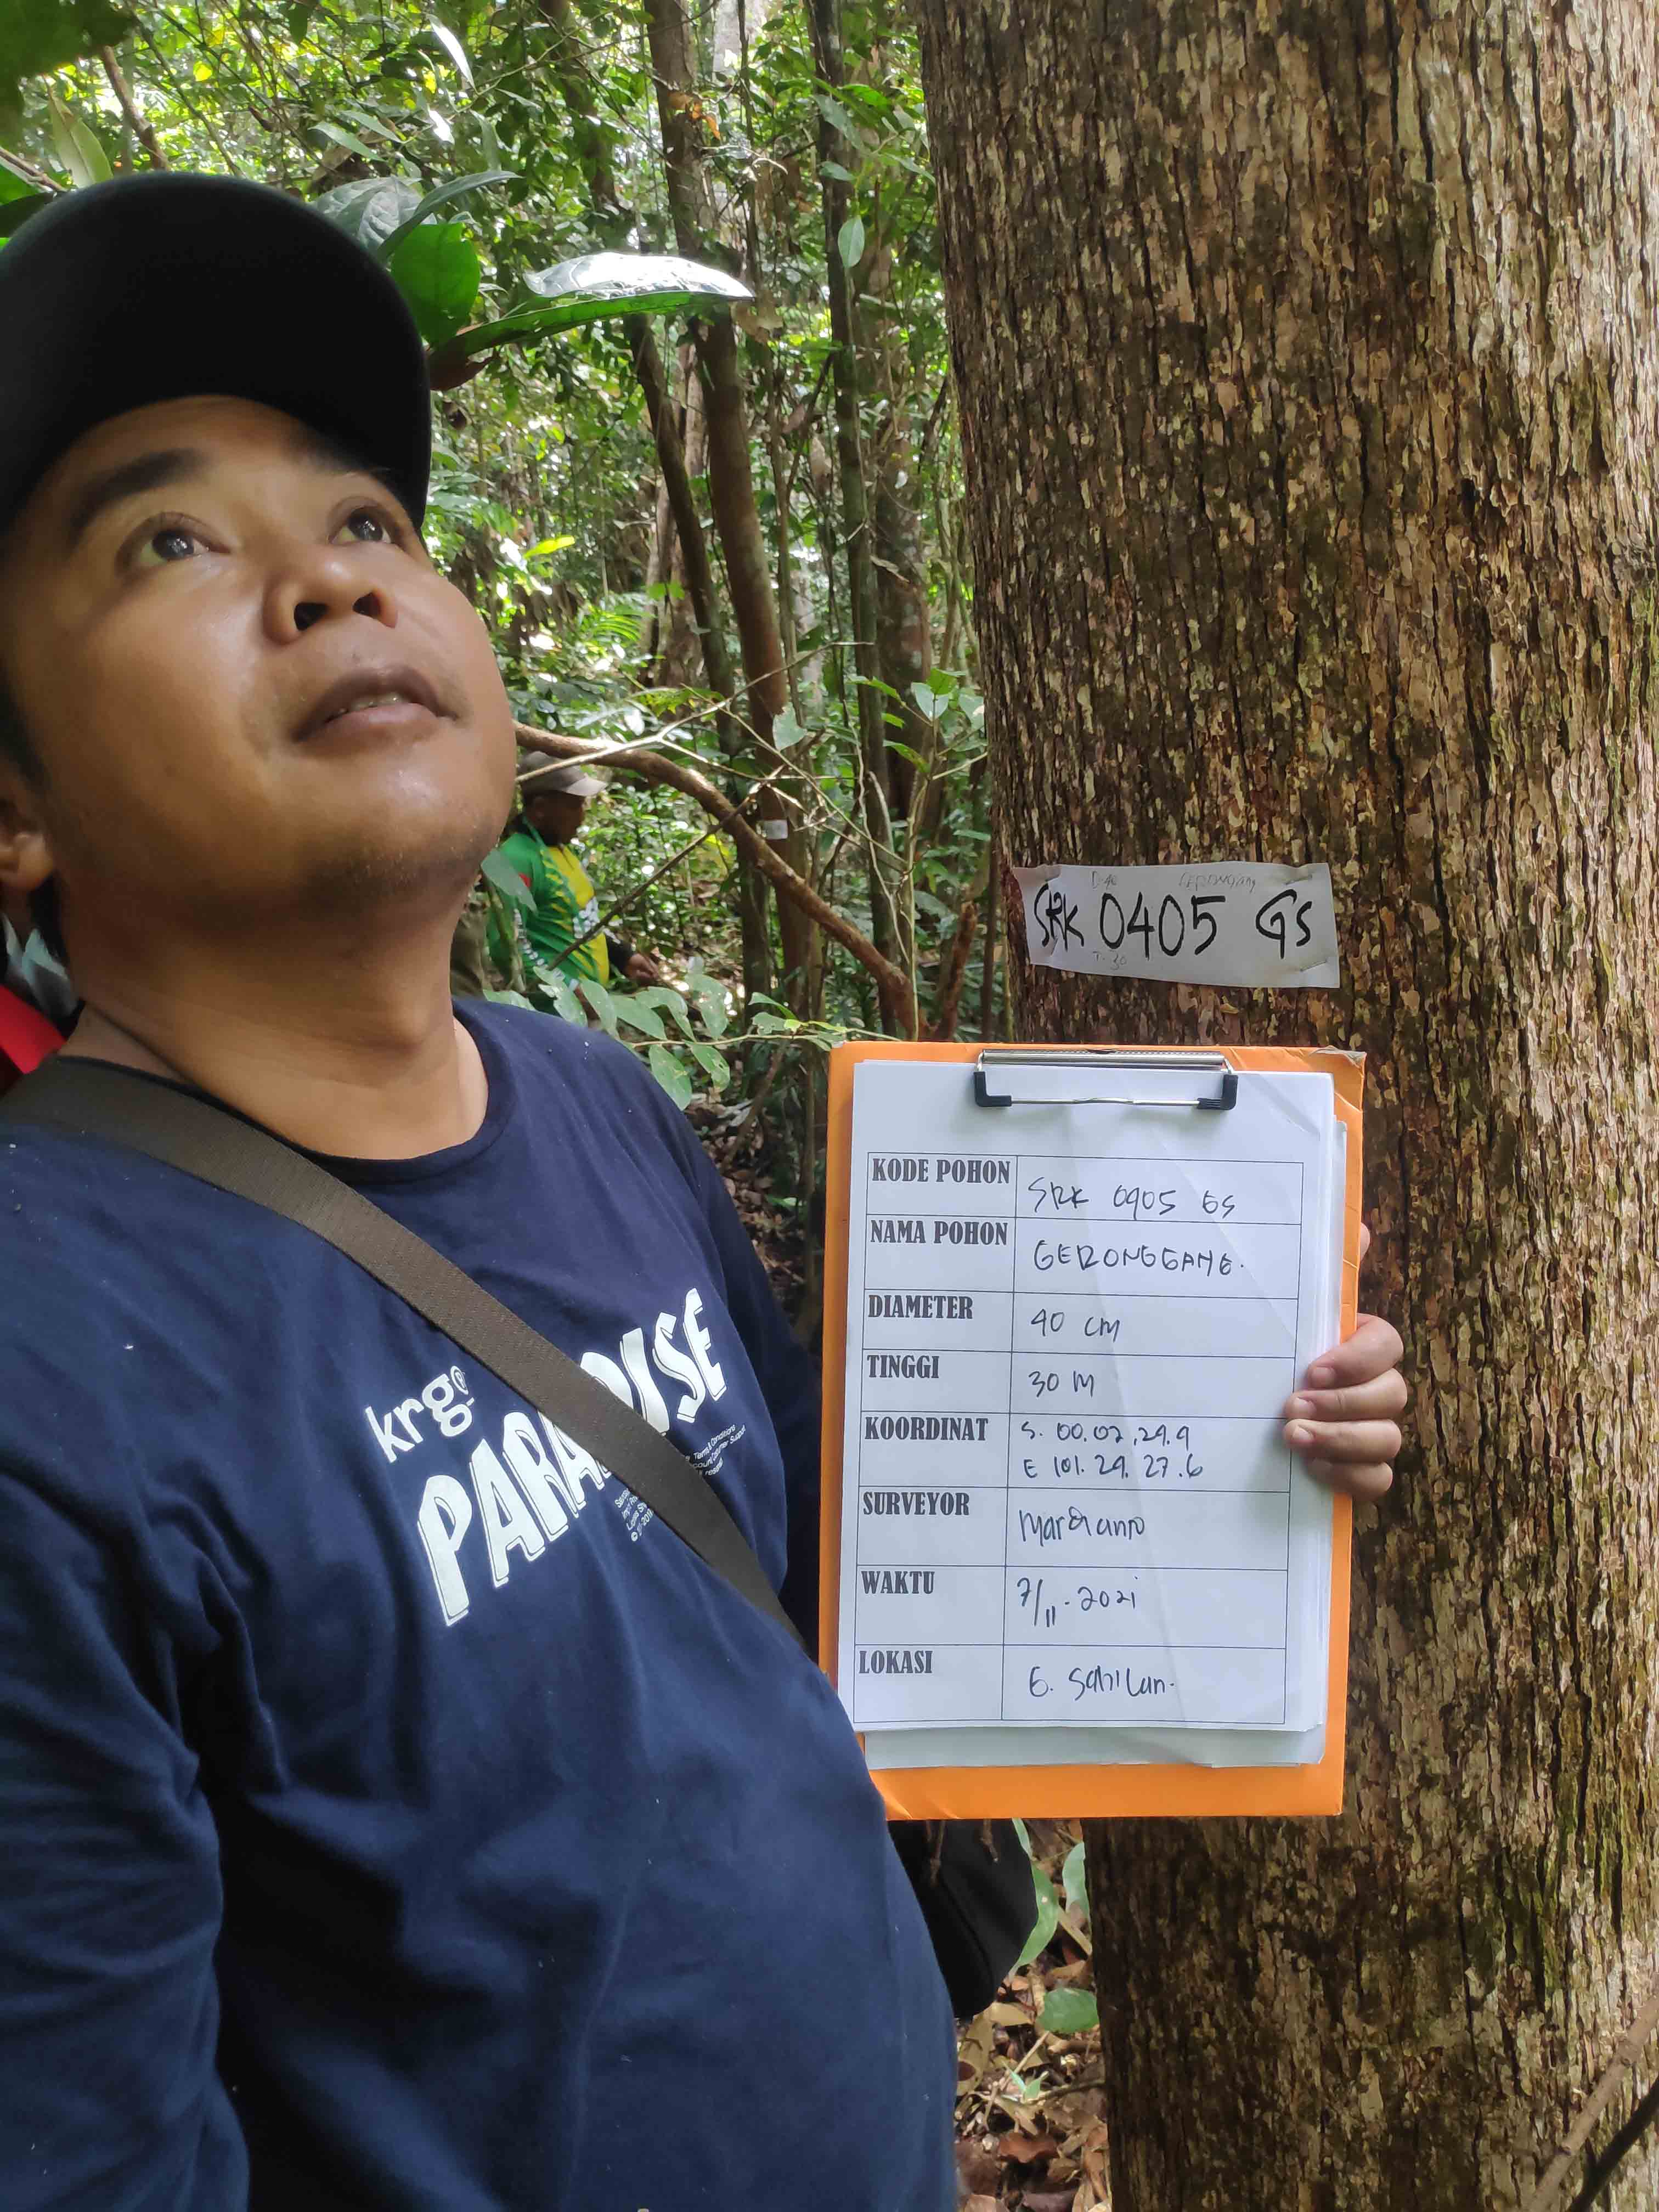 SRK 0405 GS
KODE POHON SRK 0405 GS
NAMA POHON GERONGGANG.
DIAMETER 40 CM
TINGGI 30 M
KOORDINAT S. 00.02.29.9
E 101.29.27.6
SURVEYOR Mardianto
WAKTU 7/11-2021
LOKASI G. Sahilan.
krg®
PARADISE